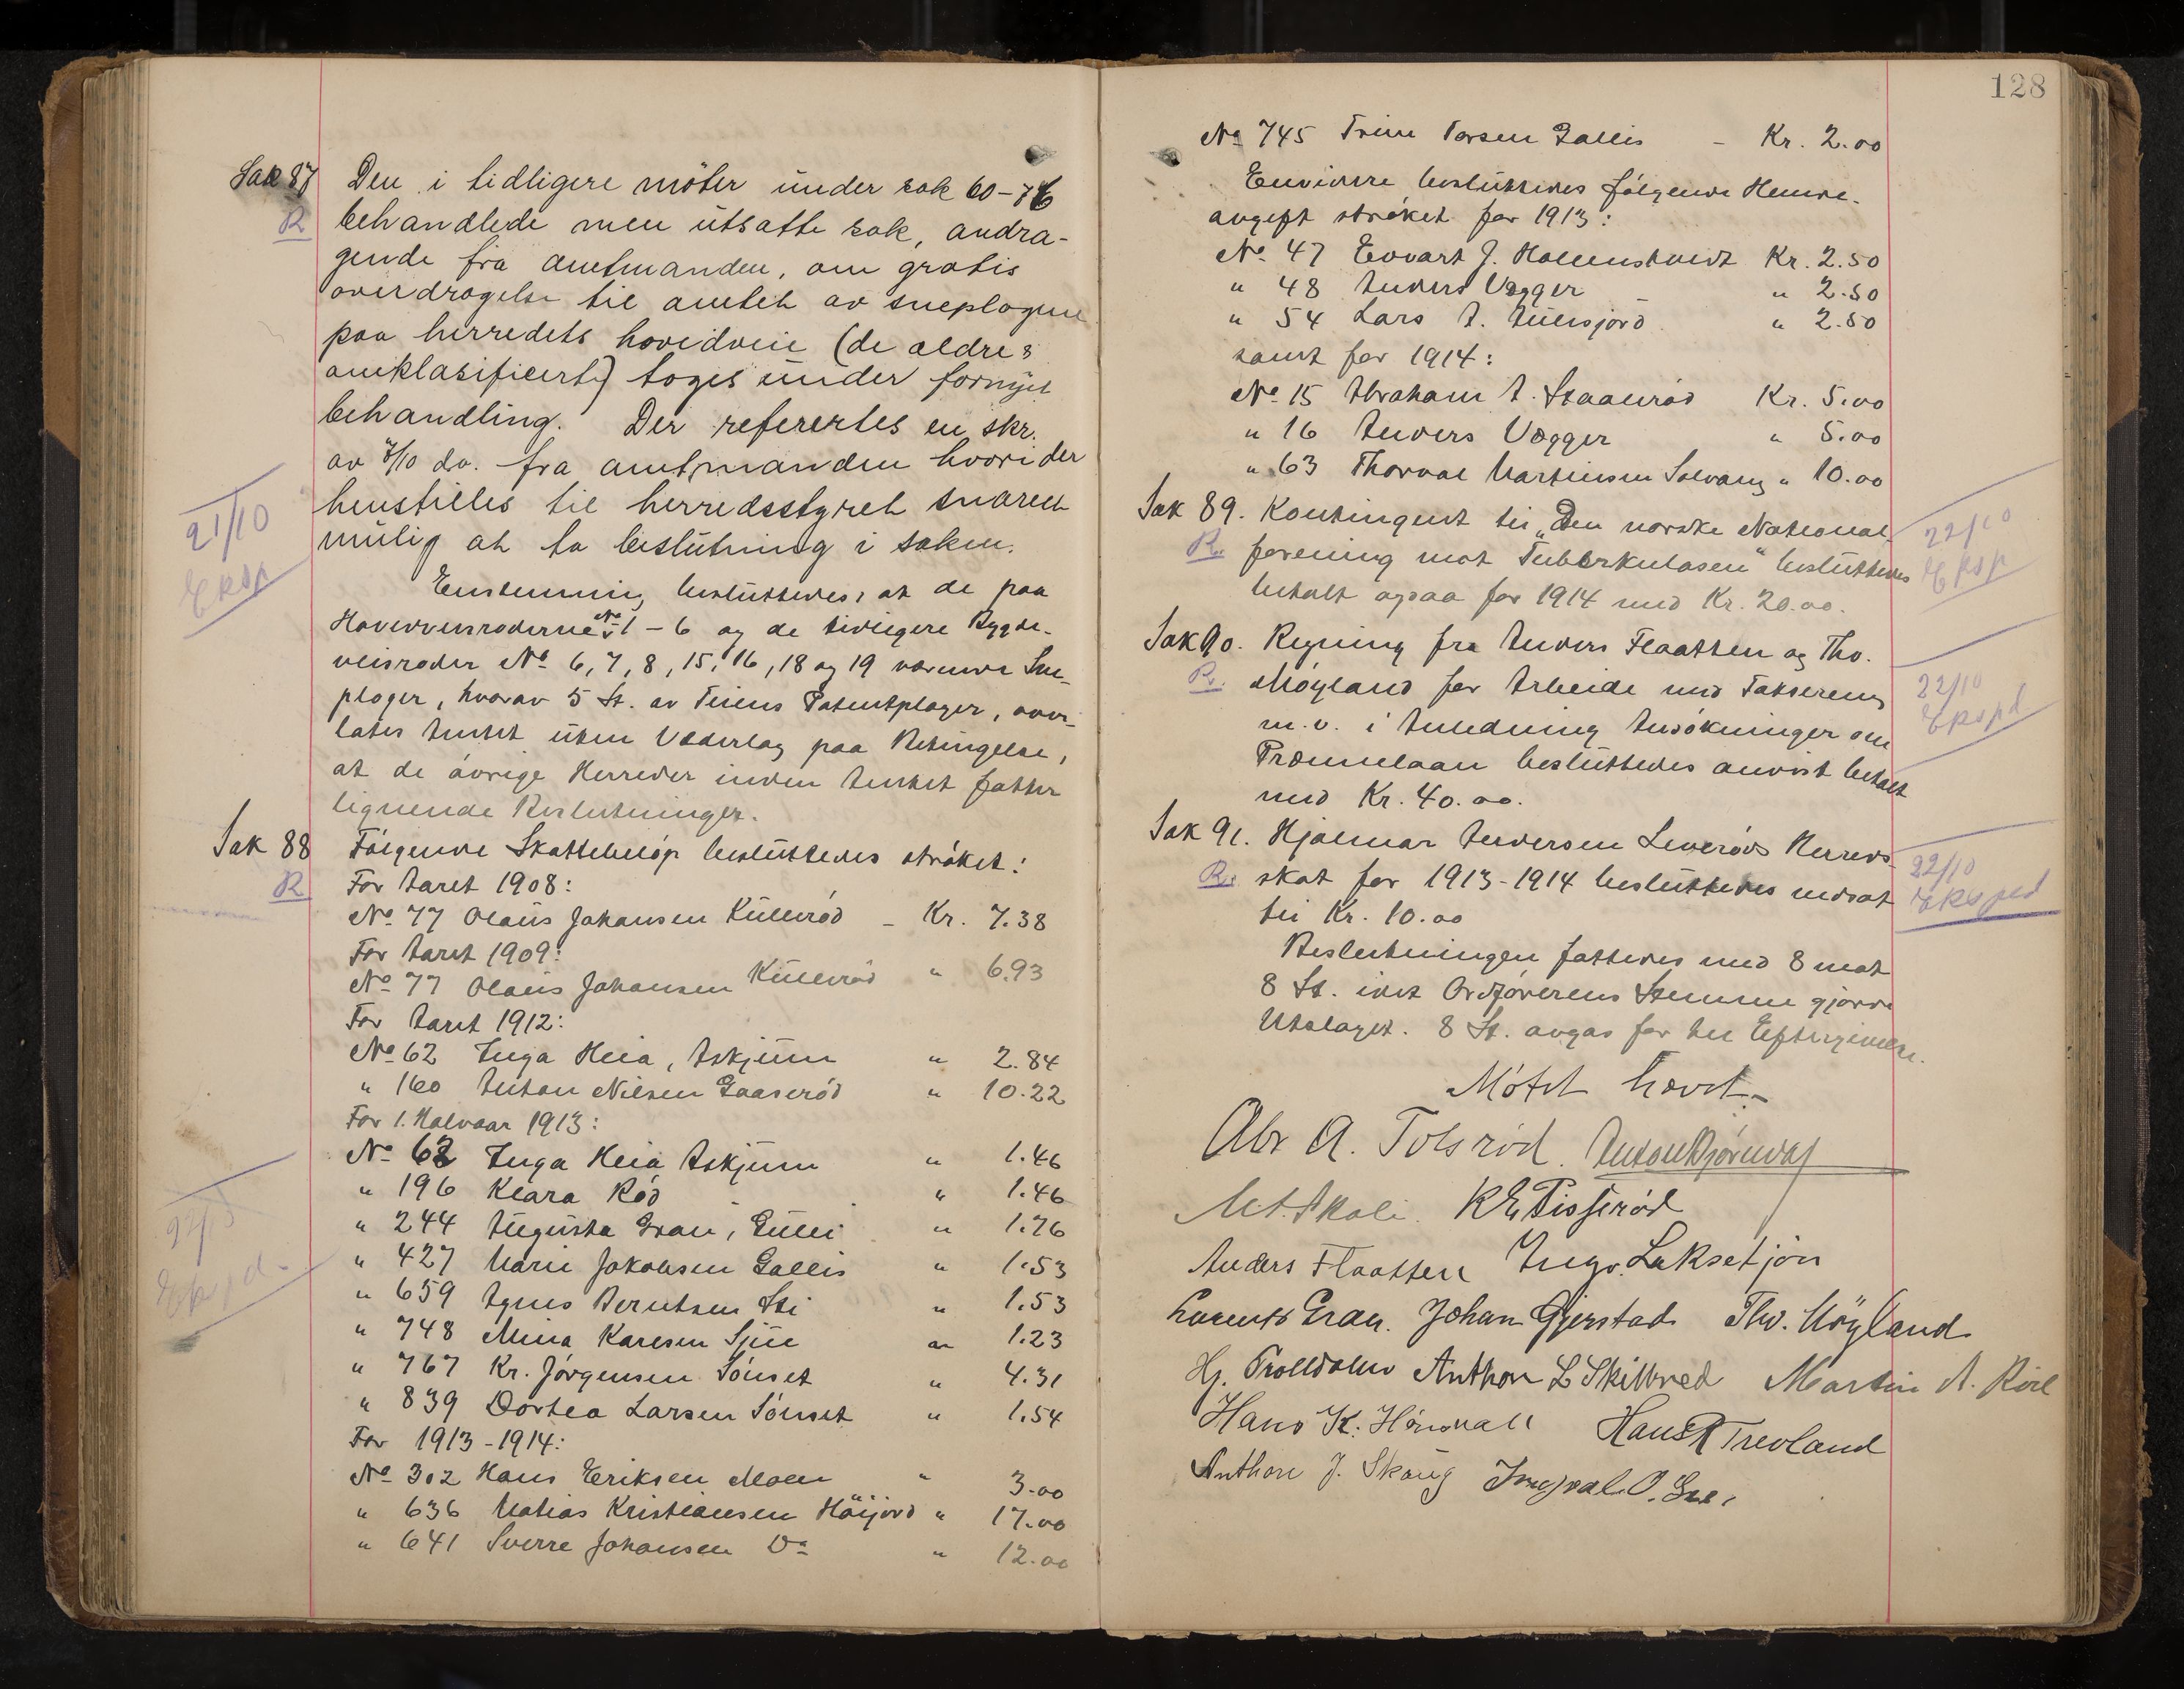 Sak 87 Den i tidligere möter under sak 60-76
R behandlede men utsatte sak, andra-
gende fra amtmanden, om gratis
overdragelse til amtet av sneplogene
paa herredets hovedveie (de ældre &
omklasificerte) toges under fornyet
behandling. Der referertes en skr.
av 7/10 d.a. fra amtmanden hvori der
henstilles til herredsstyret snarest
mulig at ta beslutning i saken.
21/10
Eksp
Enstemmig besluttedes, at de paa
Hovedveisroderne No 1-6 og de tidligere Bygde-
veisroder No 6, 7, 8, 15, 16, 18 og 19 værende Sne-
ploger, hvorav 5 St. av Teiens Patentploger, over-
lates Amtet uten Vederlag paa Betingelse,
at de øvrige Herreder inden Amtet fatter
lignende Beslutninger.
Sak 88 Følgende Skattebeløp besluttedes strøket:
R For Aaret 1908:
No 77 Olaus Johansen Kullerød - Kr. 7.38
For Aaret 1909:
No 77 Olaus Johansen Kullerød " 6.93
For Aaret 1912:
No 62 Inga Heia, Askjum " 2.84
" 160 Anton Nilsen Gaaserød " 10.22
For 1. Halvaar 1913:
No 62 Inga Heia Askjum " 1.46
" 196 Klara Rød " 1.46
" 244 Augusta Gran, Gulli " 1.76
" 427 Marie Jakobsen Gallis " 1.53
" 659 Agnes Berntsen Sti " 1.53
" 748 Mina Karlsen Sjue " 1.23
" 767 Kr. Jørgensen Sønset " 4.31
" 839 Dortea Larsen Sønset " 1.54
For 1913-1914:
No 302 Hans Eriksen Moen " 3.00
" 636 Matias Kristiansen Høijord " 17.00
" 641 Sverre Johansen Do " 12.00
128
No 745 Trine Larsen Gallis - Kr. 2.00
Endvidere besluttedes følgende Hunde-
avgift strøket for 1913:
No 47 Edvart J. Holmenskvedt Kr. 2.50
" 48 Anders Vegger " 2.50
" 54 Lars A. Aulesjord " 2.50
samt for 1914:
No 15 Abraham A. Staanrød Kr. 5.00
" 16 Anders Vegger " 5.00
" 63 Thorval Martinsen Solvang " 10.00
Sak 89. Kontingent til "Den norske National-
R. forening mot Tuberkulosen" besluttedes
betalt ogsaa for 1914 med Kr. 20.00.
22/10
Eksp
Sak 90. Regning fra Anders Flaatten og Tho.
R. Møyland for Arbeide med Taksering
m.v. i Anledning Ansøkninger om
Præmielaan besluttedes anvist betalt
med Kr. 40.00.
22/10
Ekspd
Sak 91. Hjalmar Andersen Leverøds Herreds-
R. skat for 1913-1914 besluttedes nedsat
til Kr. 10.00
22/10
Eksped
Beslutningen fattedes med 8 mot
8 St. idet Ordførerens Stemme gjorde
Utslaget. 8 St. avgas for hel Eftergivelse.
Mötet hævet.
Abr A. Tolsrød. Anton Bjørndal
M. A. Skoli. K E Tisserød
Anders Flaatten Ingv. Laksetjøn
Lorents Gran. Johan Gjerstad. Thv. Möyland
Hj. Trolldalen Anthon L Skillved Martin A. Röil
Hans K. Hönsvall Hans R Trevland
Anthon J. Skaug Ingval O. Gul.